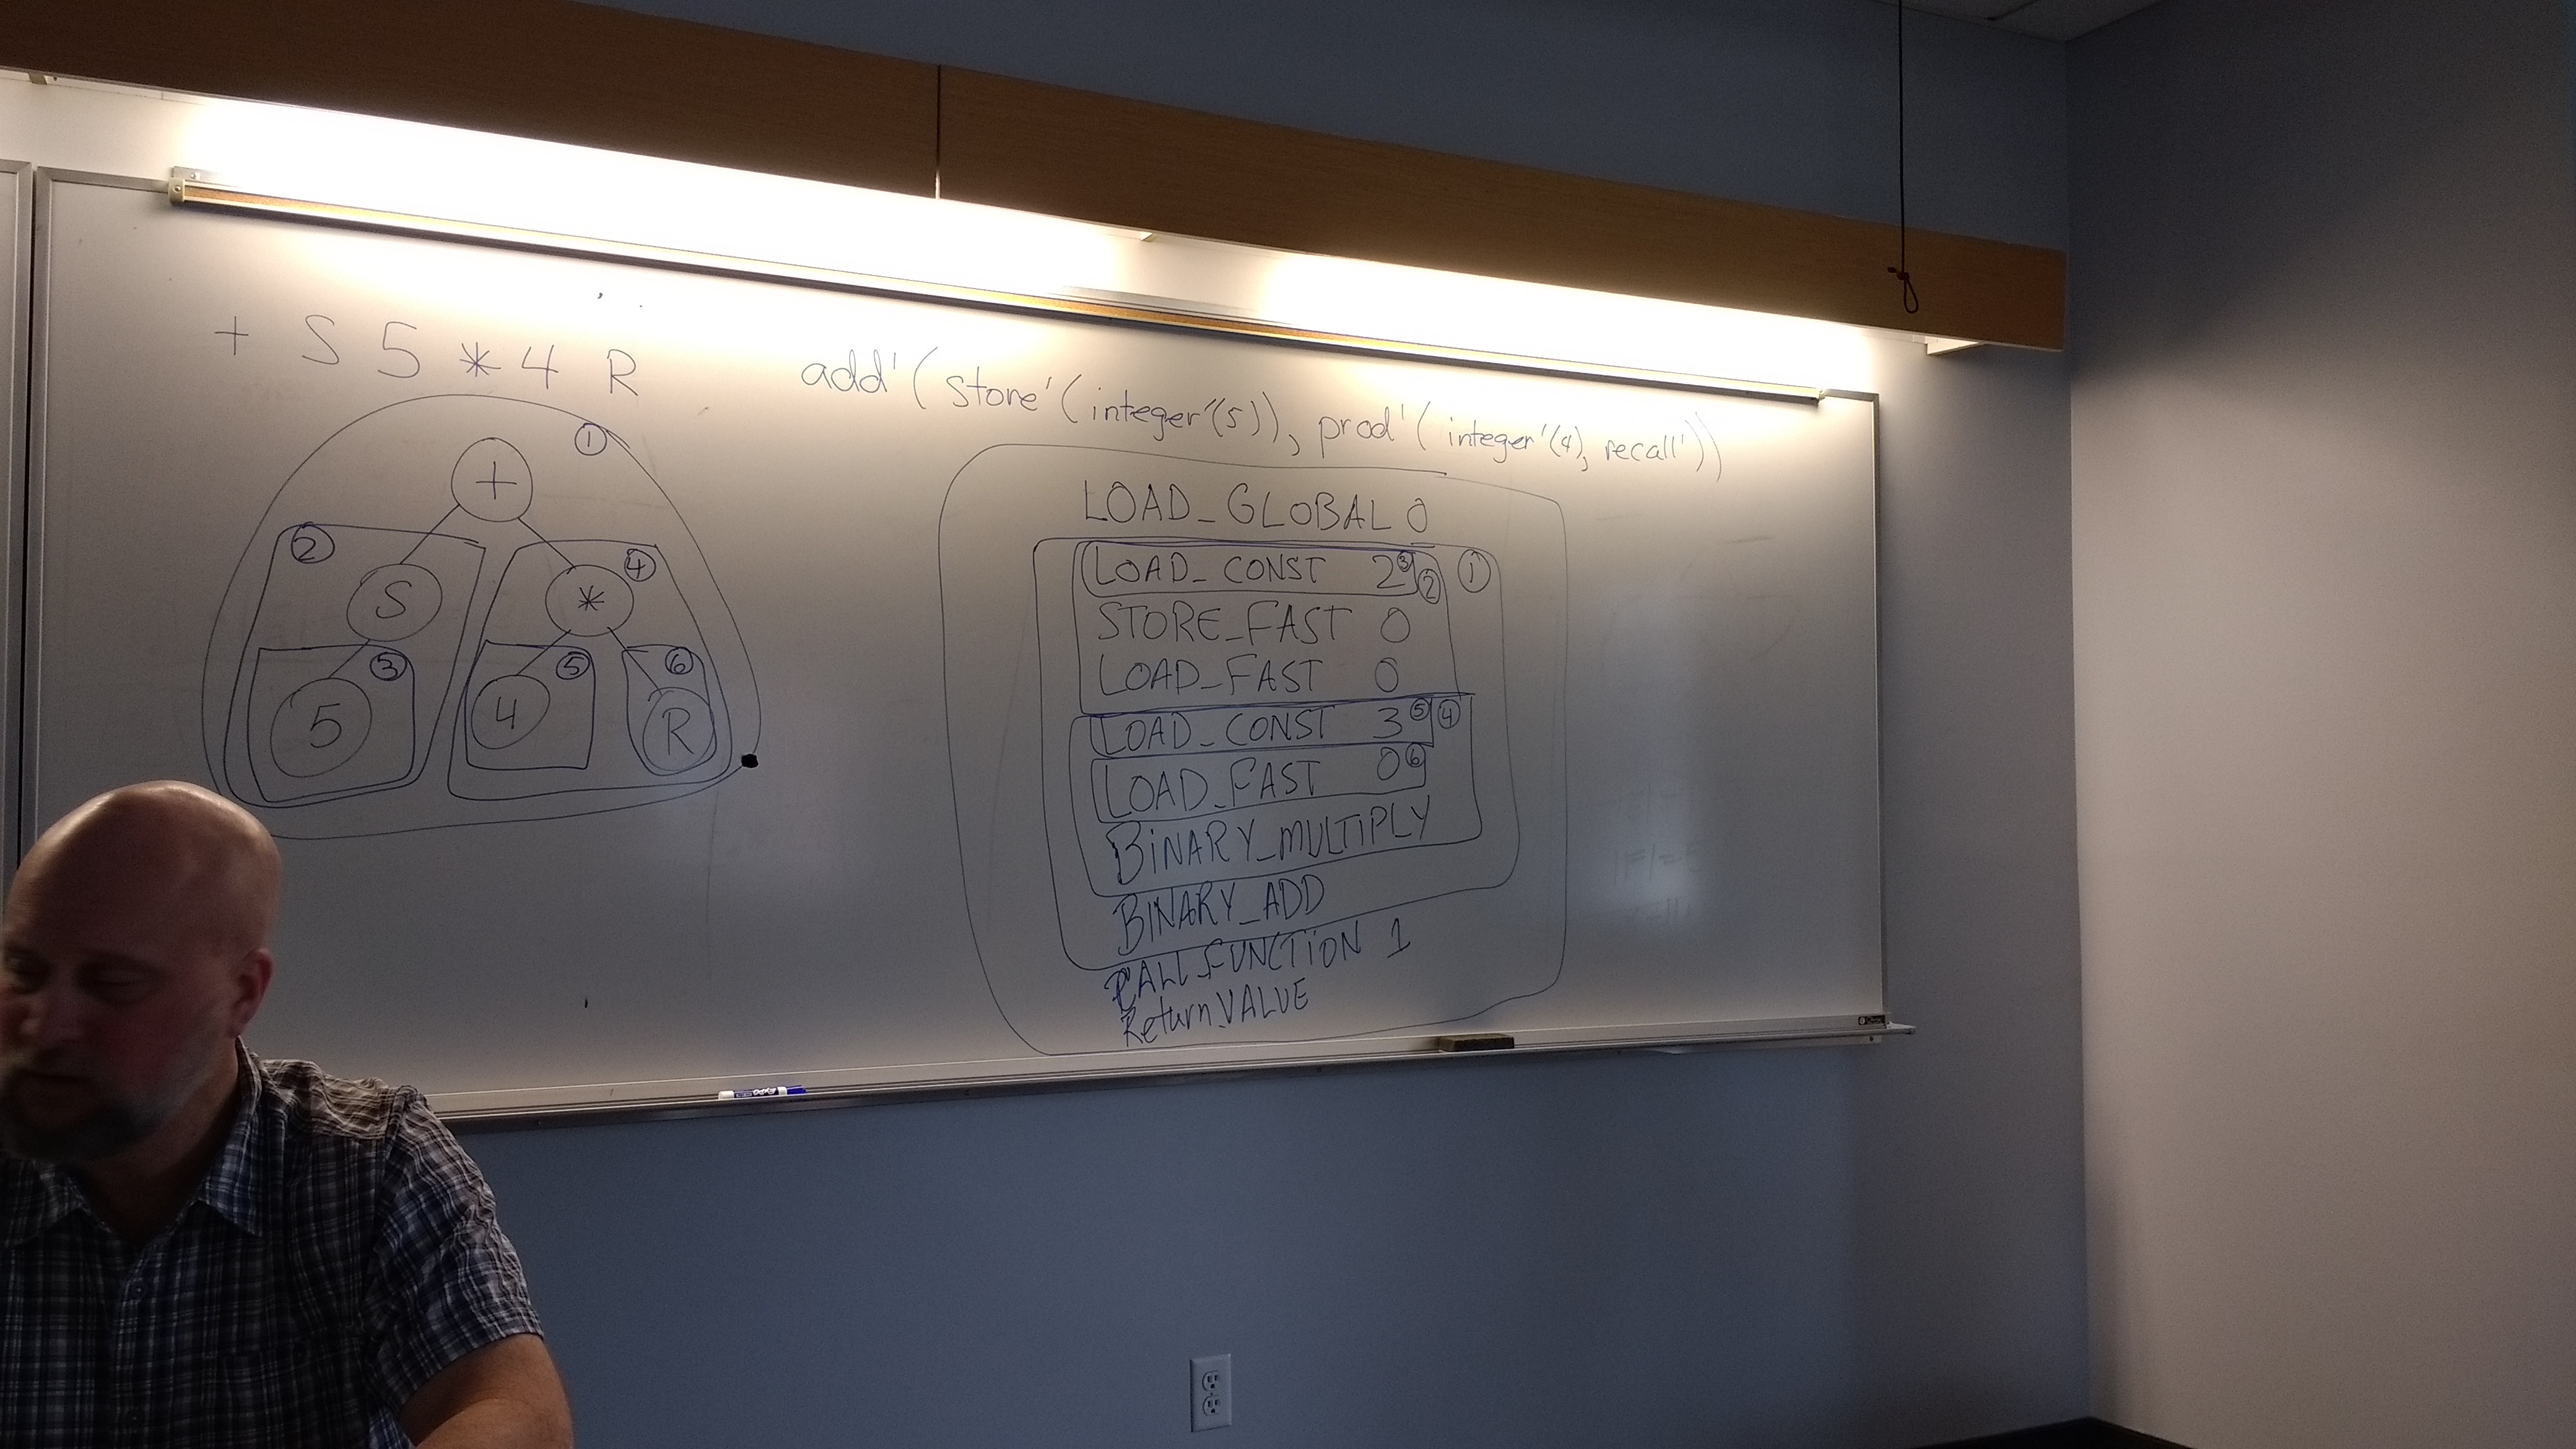 + S 5 * 4 R
add'(store'(integer'(5)), prod'(integer'(4), recall'))
1
+
2
4
S
*
3
5
6
5
4
R
LOAD_GLOBAL 0
LOAD_CONST 2 3 2 1
STORE_FAST 0
LOAD_FAST 0
LOAD_CONST 3 5 4
LOAD_FAST 0 6
BiNARY_MULTiPLY
BINARY_ADD
CALL_FUNCTiON 1
Return_VALUE